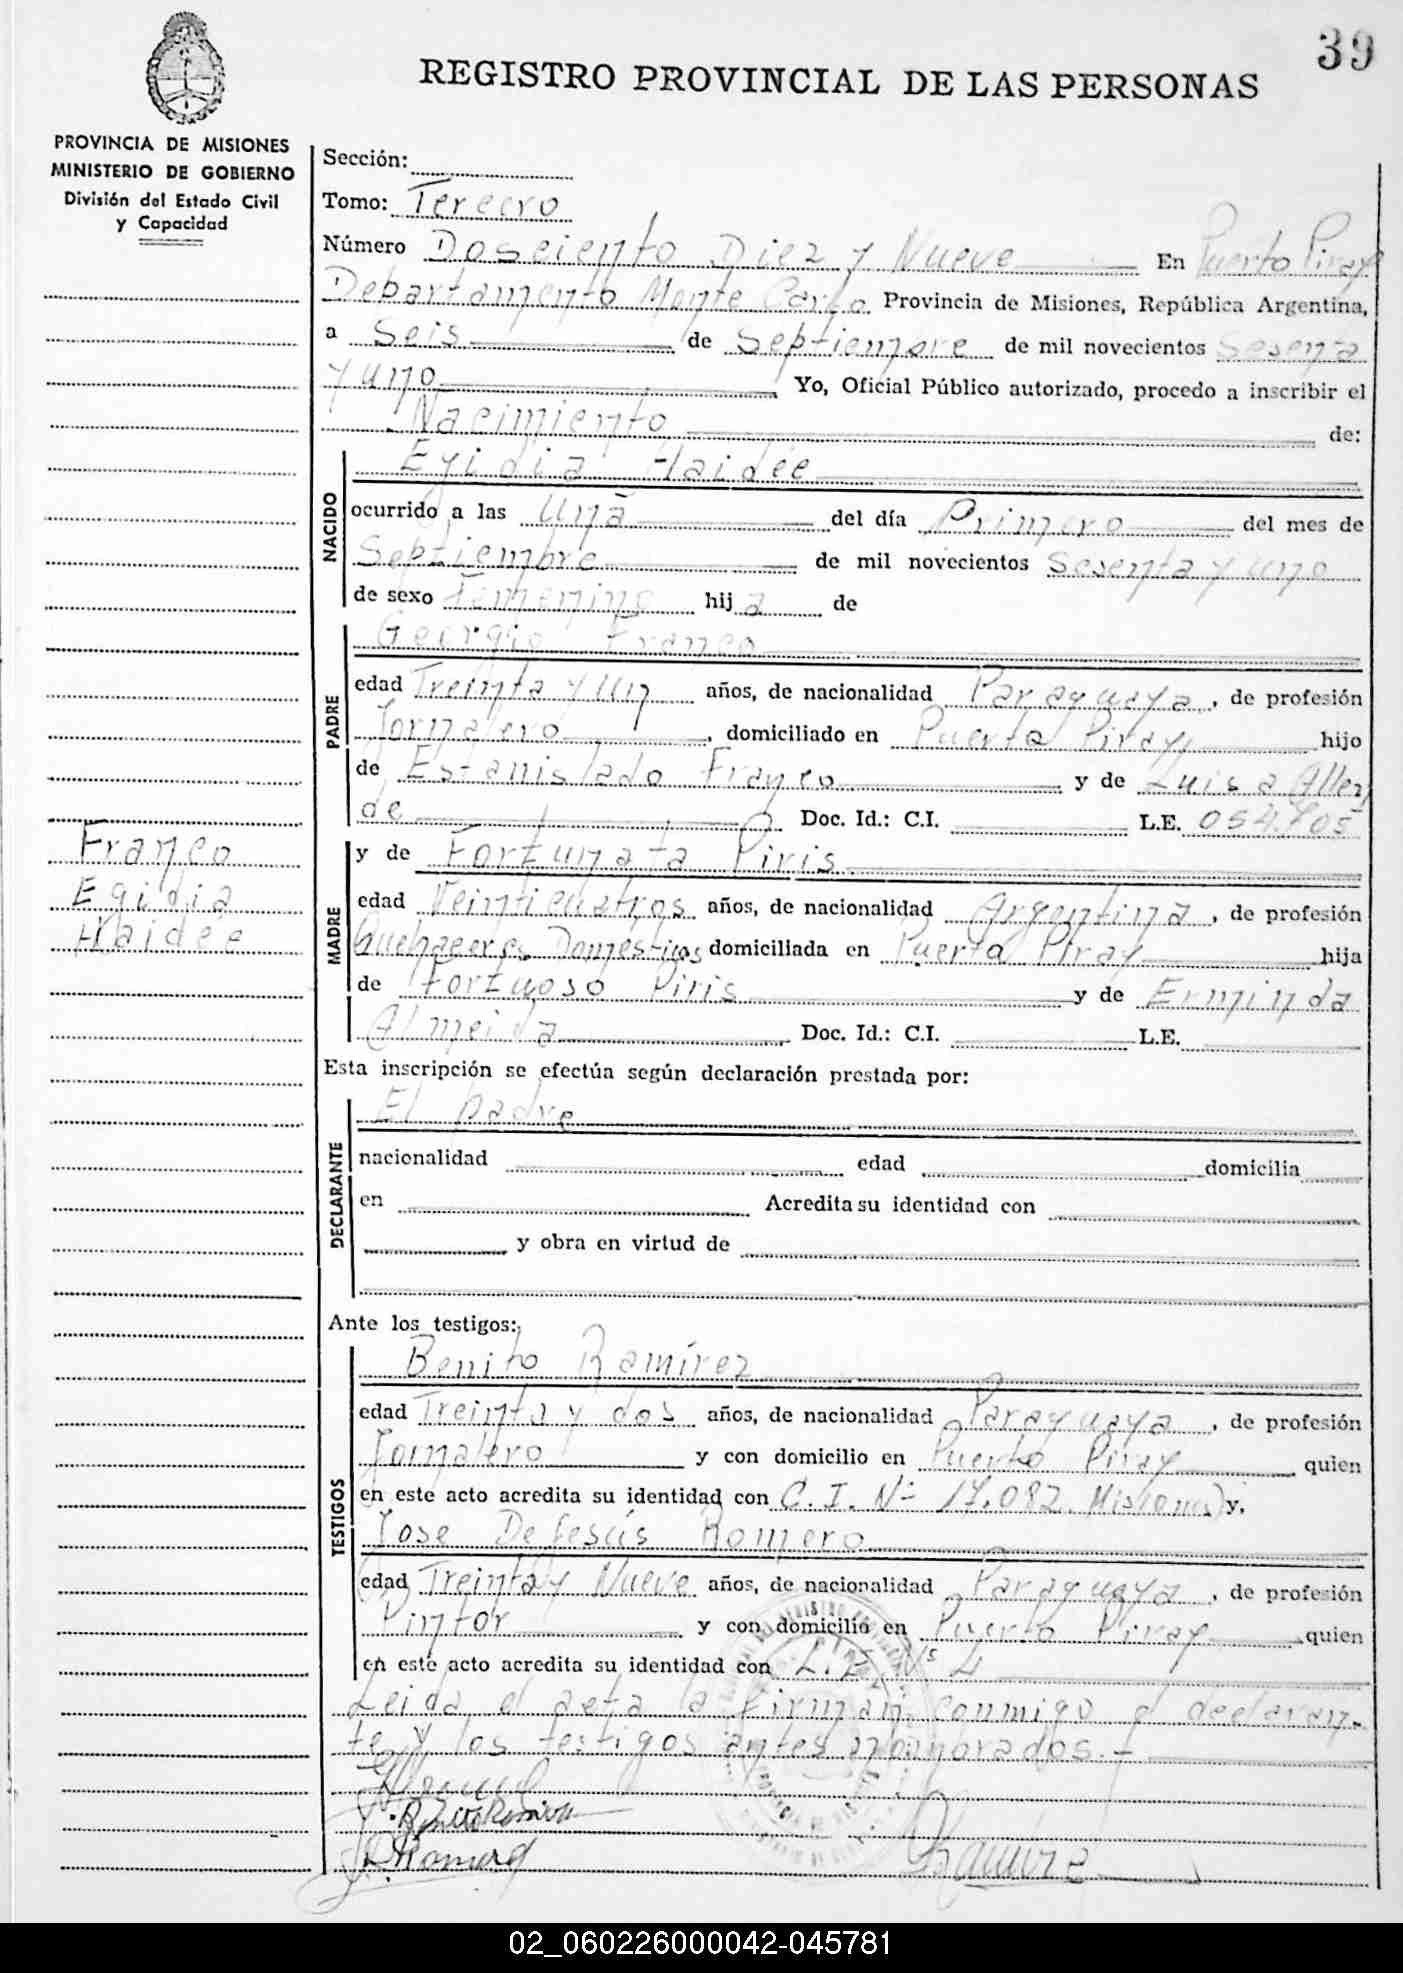 39
REGISTRO PROVINCIAL DE LAS PERSONAS
PROVINCIA DE MISIONES
MINISTERIO DE GOBIERNO
División del Estado Civil
y Capacidad
Sección:
Tomo: Tercero
Número Doseiento Diez y Nueve En Puerto Piray
Departamento Monte Carlo Provincia de Misiones, República Argentina,
a Seis de Septiembre de mil novecientos Sesenta
y uno Yo, Oficial Público autorizado, procedo a inscribir el
Nacimiento de:
NACIDO
Egidia Haidée
ocurrido a las Una del día Primero del mes de
Septiembre de mil novecientos Sesenta y uno
de sexo Femenino hija de
PADRE
Georgio Franco
edad Treinta y Un años, de nacionalidad Paraguaya, de profesión
Jornalero, domiciliado en Puerto Piray hijo
de Estanislado Franco y de Luisa Allen
de Doc. Id.: C.I. L.E. 054.705
MADRE
y de Fortunata Piris
edad Veinticuatros años, de nacionalidad Argentina, de profesión
Quehaceres Domésticos domiciliada en Puerto Piray hija
de Fortuoso Piris y de Erminda
Almeida Doc. Id.: C.I. L.E.
Franco
Egidia
Haidée
Esta inscripción se efectúa según declaración prestada por:
DECLARANTE
El padre
nacionalidad edad domicilia
en Acredita su identidad con
y obra en virtud de
Ante los testigos:
TESTIGOS
Benito Ramírez
edad Treinta y dos años, de nacionalidad Paraguaya, de profesión
Jornalero y con domicilio en Puerto Piray quien
en este acto acredita su identidad con C.I. Nº 17.082 Misiones) y,
Jose DeJesús Romero
edad Treinta y Nueve años, de nacionalidad Paraguaya, de profesión
Pintor y con domicilio en Puerto Piray quien
en este acto acredita su identidad con
Leida el acta la firman conmigo el declaran-
te y los testigos antes nombrados.-
Benito Ramirez
J. Romero
Ramírez
02_060226000042-045781